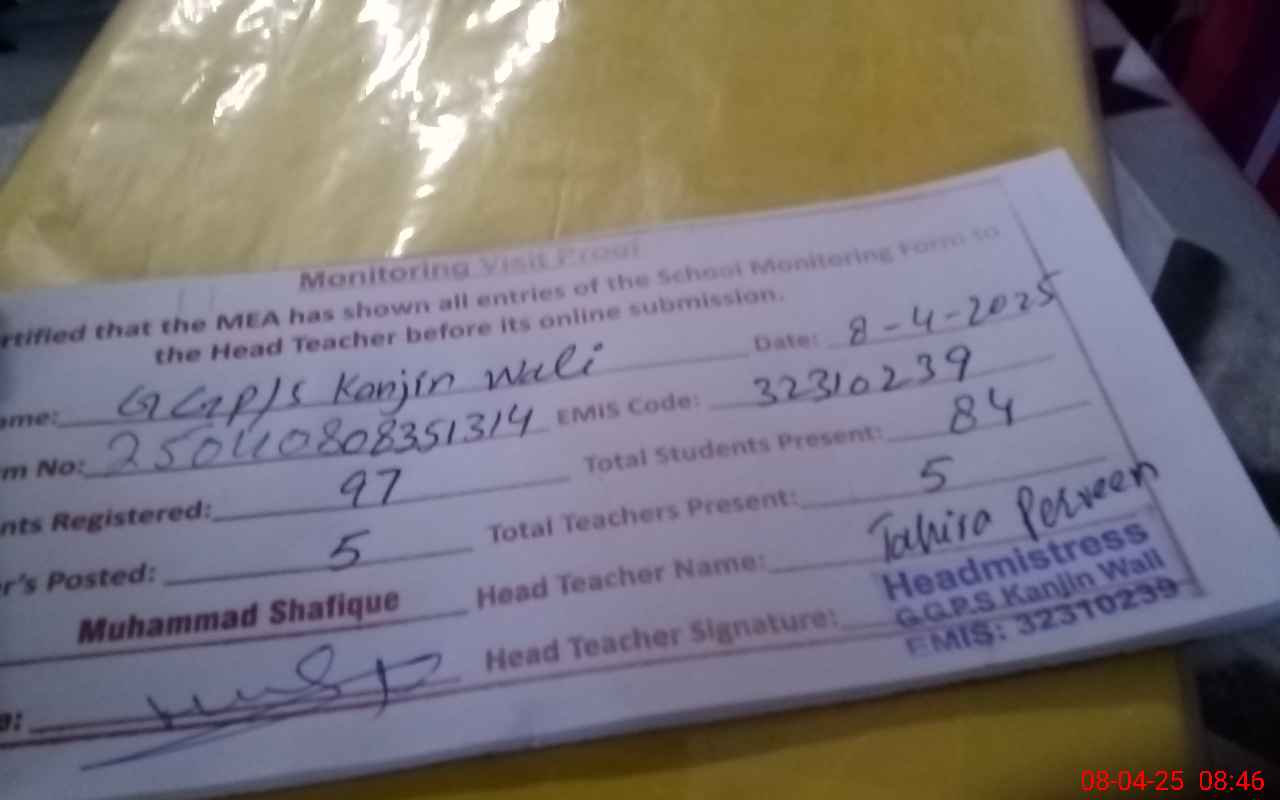 Monitoring Visit Proof
rtified that the MEA has shown all entries of the School Monitoring Form to
the Head Teacher before its online submission.
ame: GGP/S Kanjin Wali Date: 8-4-2025
m No: 25040808351314 EMIS Code: 32310239
nts Registered: 97 Total Students Present: 84
r's Posted: 5 Total Teachers Present: 5
Muhammad Shafique Head Teacher Name: Tahira Perveen
Head Teacher Signature:
Headmistress
G.G.P.S Kanjin Wali
EMIS: 32310239
08-04-25 08:46